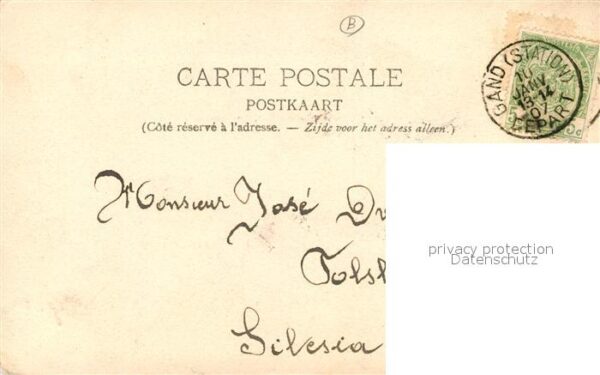 B
CARTE POSTALE
POSTKAART
(Côté réservé à l'adresse. — Zijde voor het adress alleen.)
GAND (STATION)
10
JANV
13-14
07
DEPART
5c
Monsieur José Du
Tolst
Silesia
privacy protection
Datenschutz